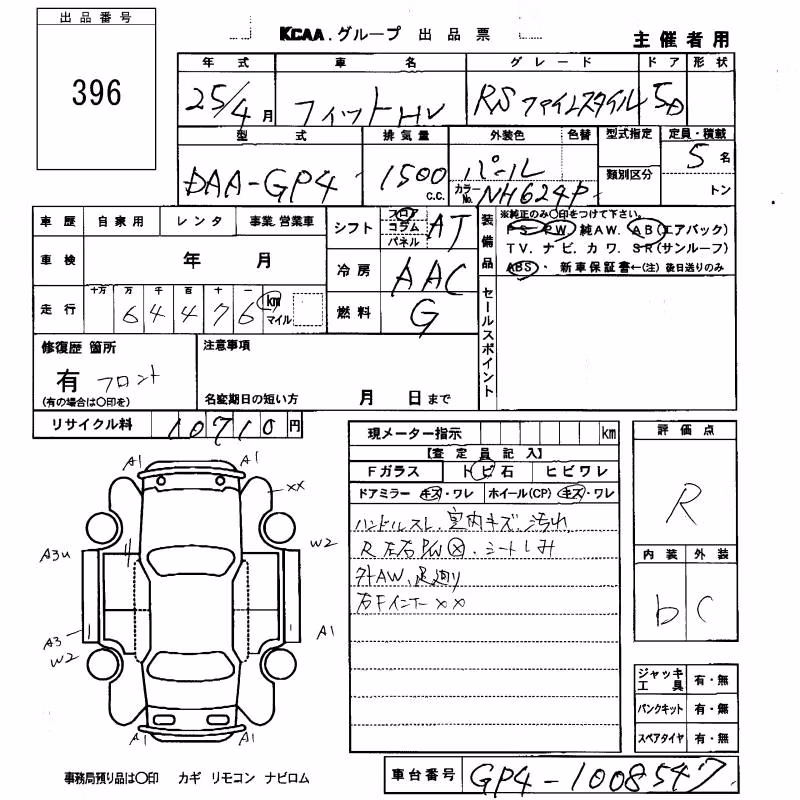 出品番号
396
KCAA.グループ 出品票
主催者用
年式 車名 グレード ドア 形状
25/4月 フィットHV RS ファインスタイル 5D
型式 排気量 外装色 色替 型式指定 定員・積載
DAA-GP4 1500 c.c. パール 類別区分 5名
カラーNo. NH624P トン
車歴 自家用 レンタ 事業.営業車
シフト フロア コラム パネル AT
装備品 ※純正のみ〇印をつけて下さい。
PS PW 純AW. AB(エアバック)
TV. ナビ. カワ. SR(サンルーフ)
ABS・ 新車保証書←(注) 後日送りのみ
車検 年 月
冷房 AAC
走行 十万 万 千 百 十 一
64476 km マイル
燃料 G
セールスポイント
修復歴 箇所
有 フロント
(有の場合は〇印を)
注意事項
名変期日の短い方 月 日まで
リサイクル料 10710円
現メーター指示 km
【査定員記入】
Fガラス トビ石 ヒビワレ
ドアミラー キズ・ワレ ホイール(CP) キズ・ワレ
ハンドルスレ. 室内キズ 汚れ
R 左右 P/W ⊗. シートしみ
外AW. 足廻り
右Fインナー ××
評価点
R
内装 外装
b C
ジャッキ工具 有・無
パンクキット 有・無
スペアタイヤ 有・無
A1 A1
××
W2
A3U
A3
W2
A1
A1 A1
事務局預り品は〇印 カギ リモコン ナビロム
車台番号 GP4-1008547